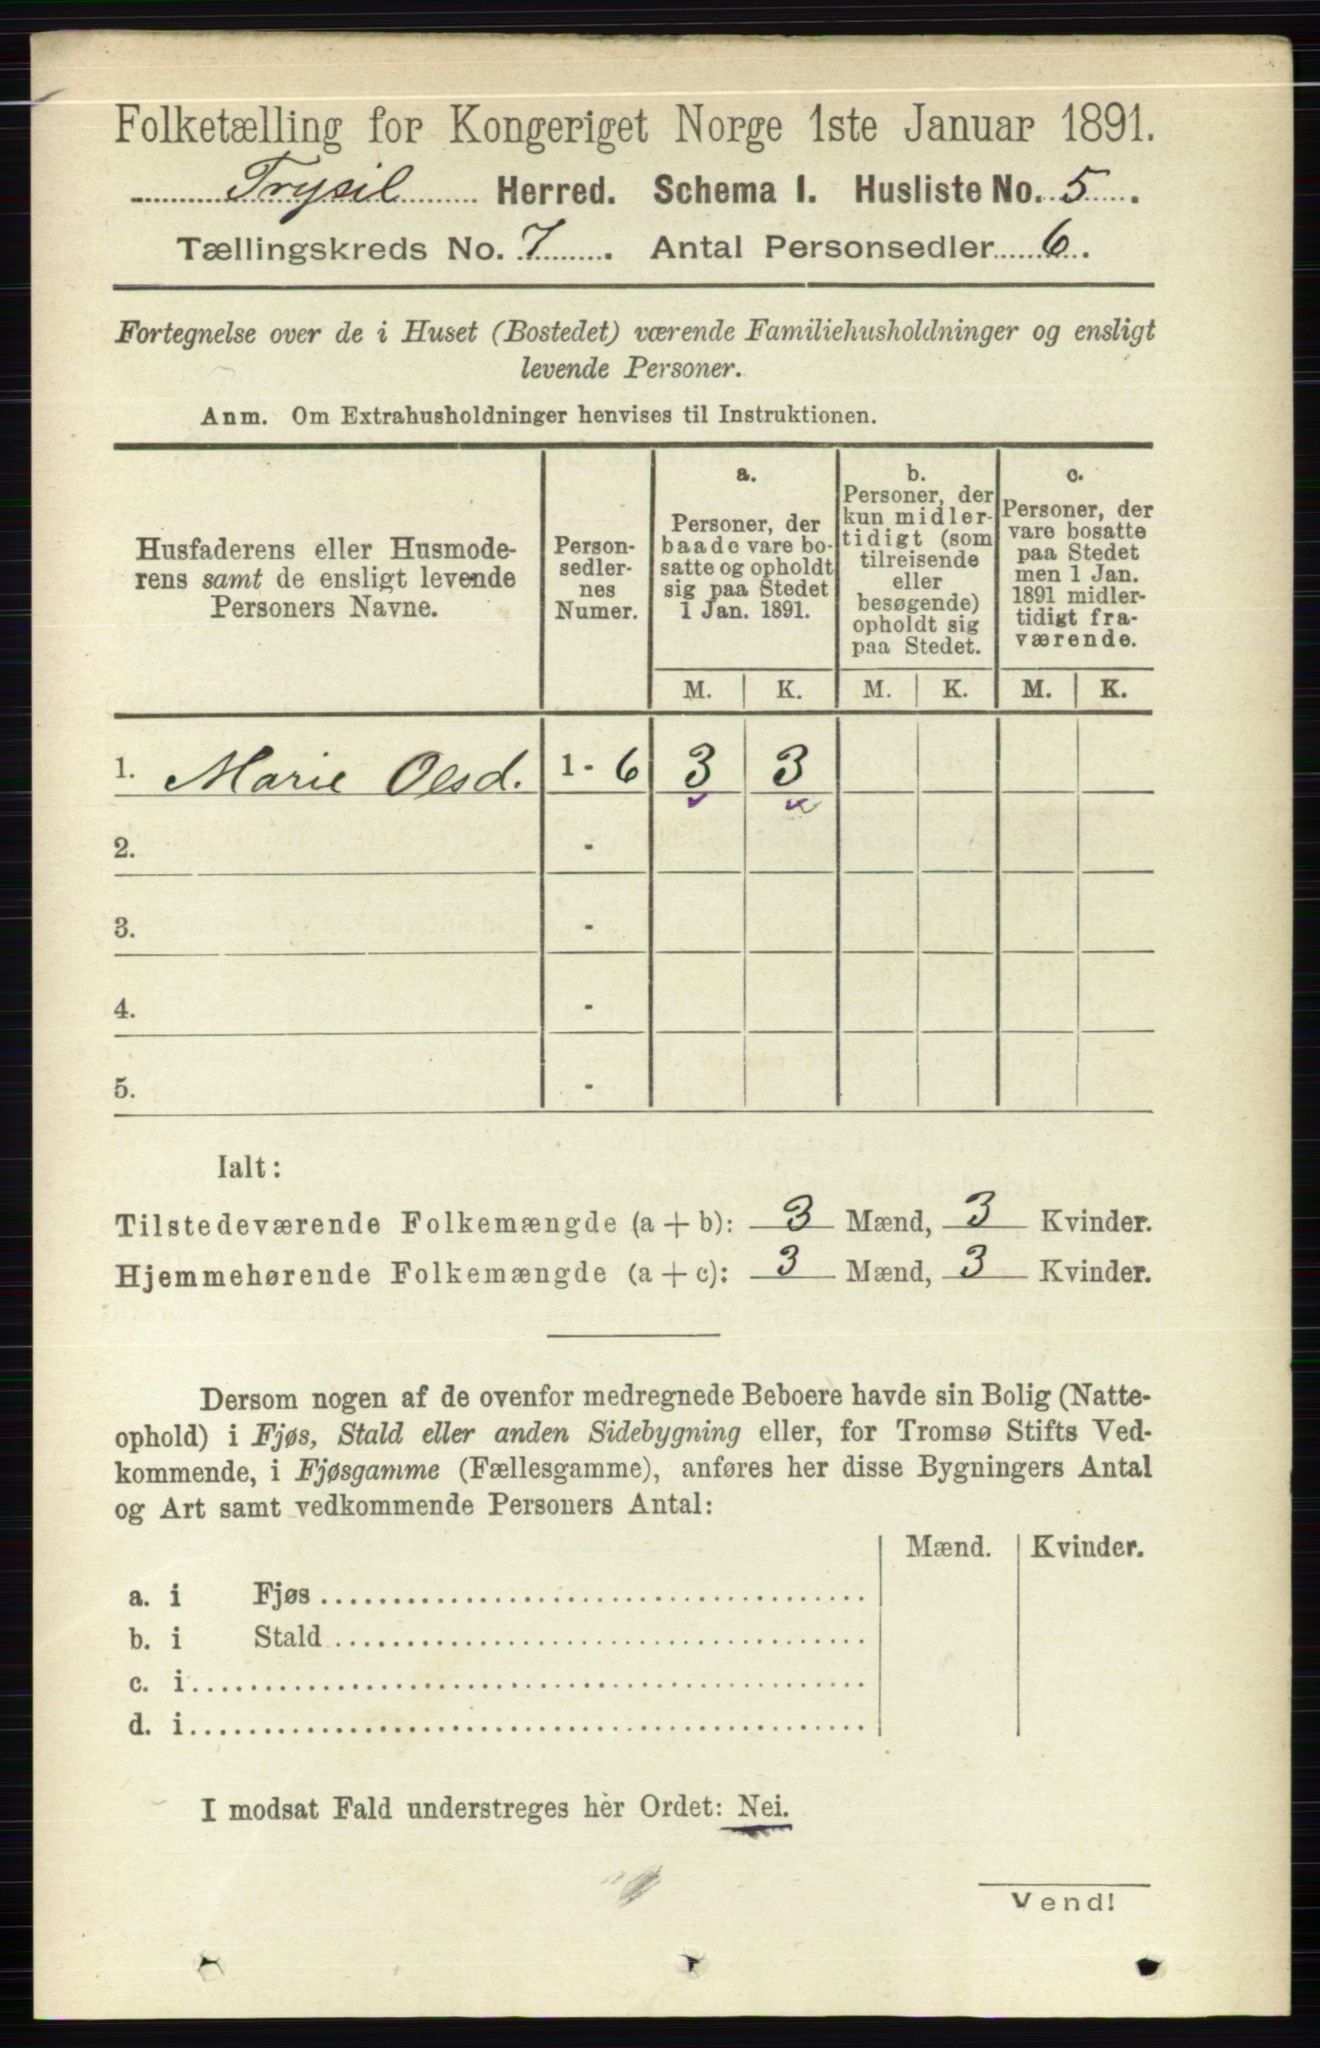 Folketælling for Kongeriget Norge 1ste Januar 1891.
Trysil Herred. Schema I. Husliste No. 5.
Tællingskreds No. 7. Antal Personsedler 6.
Fortegnelse over de i Huset (Bostedet) værende Familiehusholdninger og ensligt
levende Personer.
Anm. Om Extrahusholdninger henvises til Instruktionen.
Husfaderens eller Husmode-
rens samt de ensligt levende
Personers Navne.
Person-
sedler-
nes
Numer.
a.
Personer, der
baade vare bo-
satte og opholdt
sig paa Stedet
1 Jan. 1891.
b.
Personer, der
kun midler-
tidigt (som
tilreisende
eller
besøgende)
opholdt sig
paa Stedet.
c.
Personer, der
vare bosatte
paa Stedet
men 1 Jan.
1891 midler-
tidigt fra-
værende.
M. K. M. K. M. K.
1. Marie Olsd. 1 - 6 3 3
2. -
3. -
4. -
5. -
Ialt:
Tilstedeværende Folkemængde (a + b): 3 Mænd, 3 Kvinder.
Hjemmehørende Folkemængde (a + c): 3 Mænd, 3 Kvinder.
Dersom nogen af de ovenfor medregnede Beboere havde sin Bolig (Natte-
ophold) i Fjøs, Stald eller anden Sidebygning eller, for Tromsø Stifts Ved-
kommende, i Fjøsgamme (Fællesgamme), anføres her disse Bygningers Antal
og Art samt vedkommende Personers Antal:
Mænd. Kvinder.
a. i Fjøs
b. i Stald
c. i
d. i
I modsat Fald understreges her Ordet: Nei.
Vend!